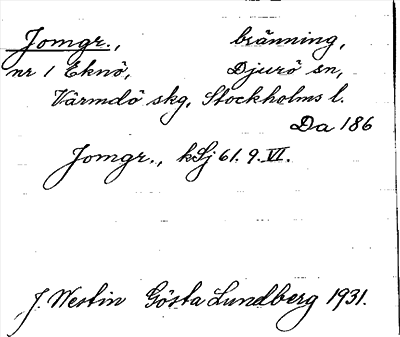 Jomgr., bränning,
nr 1 Eknö, Djurö sn,
Värmdö skg, Stockholms l.
Da 186
Jomgr., kSj 61. 9. VI.
J. Westin Gösta Lundberg 1931.